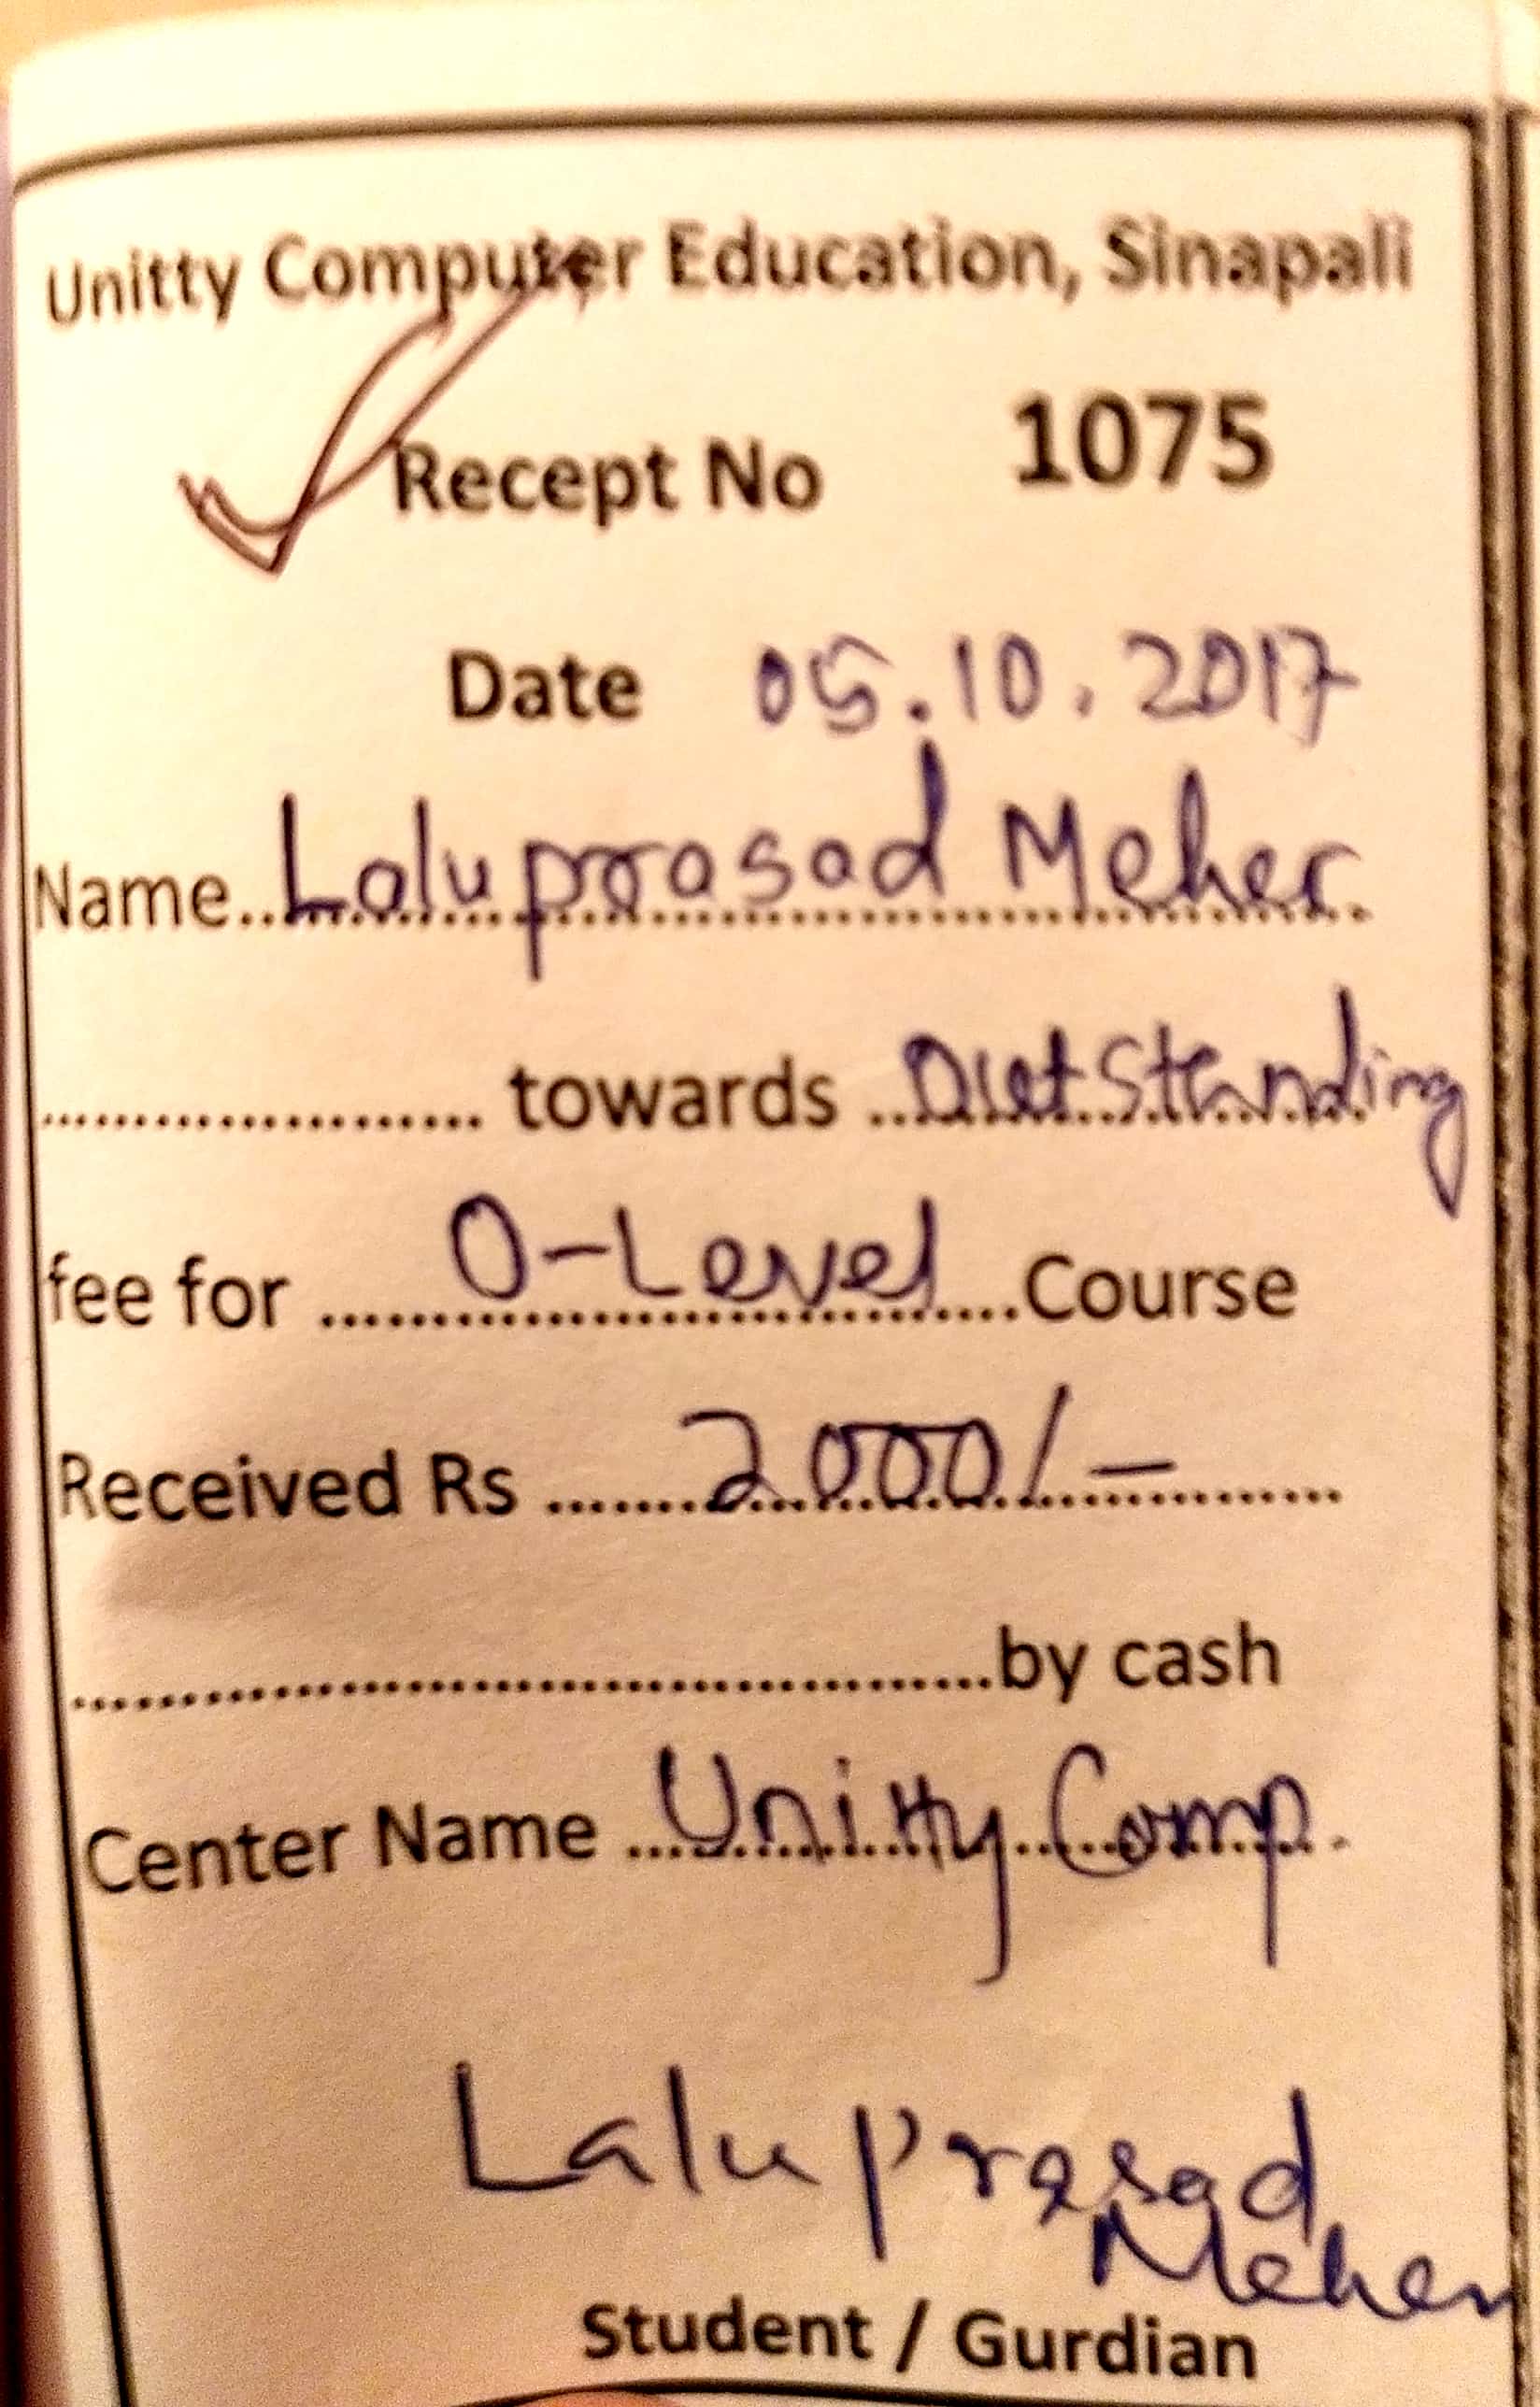 Unitty Computer Education, Sinapali
Recept No 1075
Date 05.10.2017
Name Laluprasad Meher
towards Outstanding
fee for O-Level Course
Received Rs 2000/-
by cash
Center Name Unitty Comp.
Laluprasad
Meher
Student / Gurdian